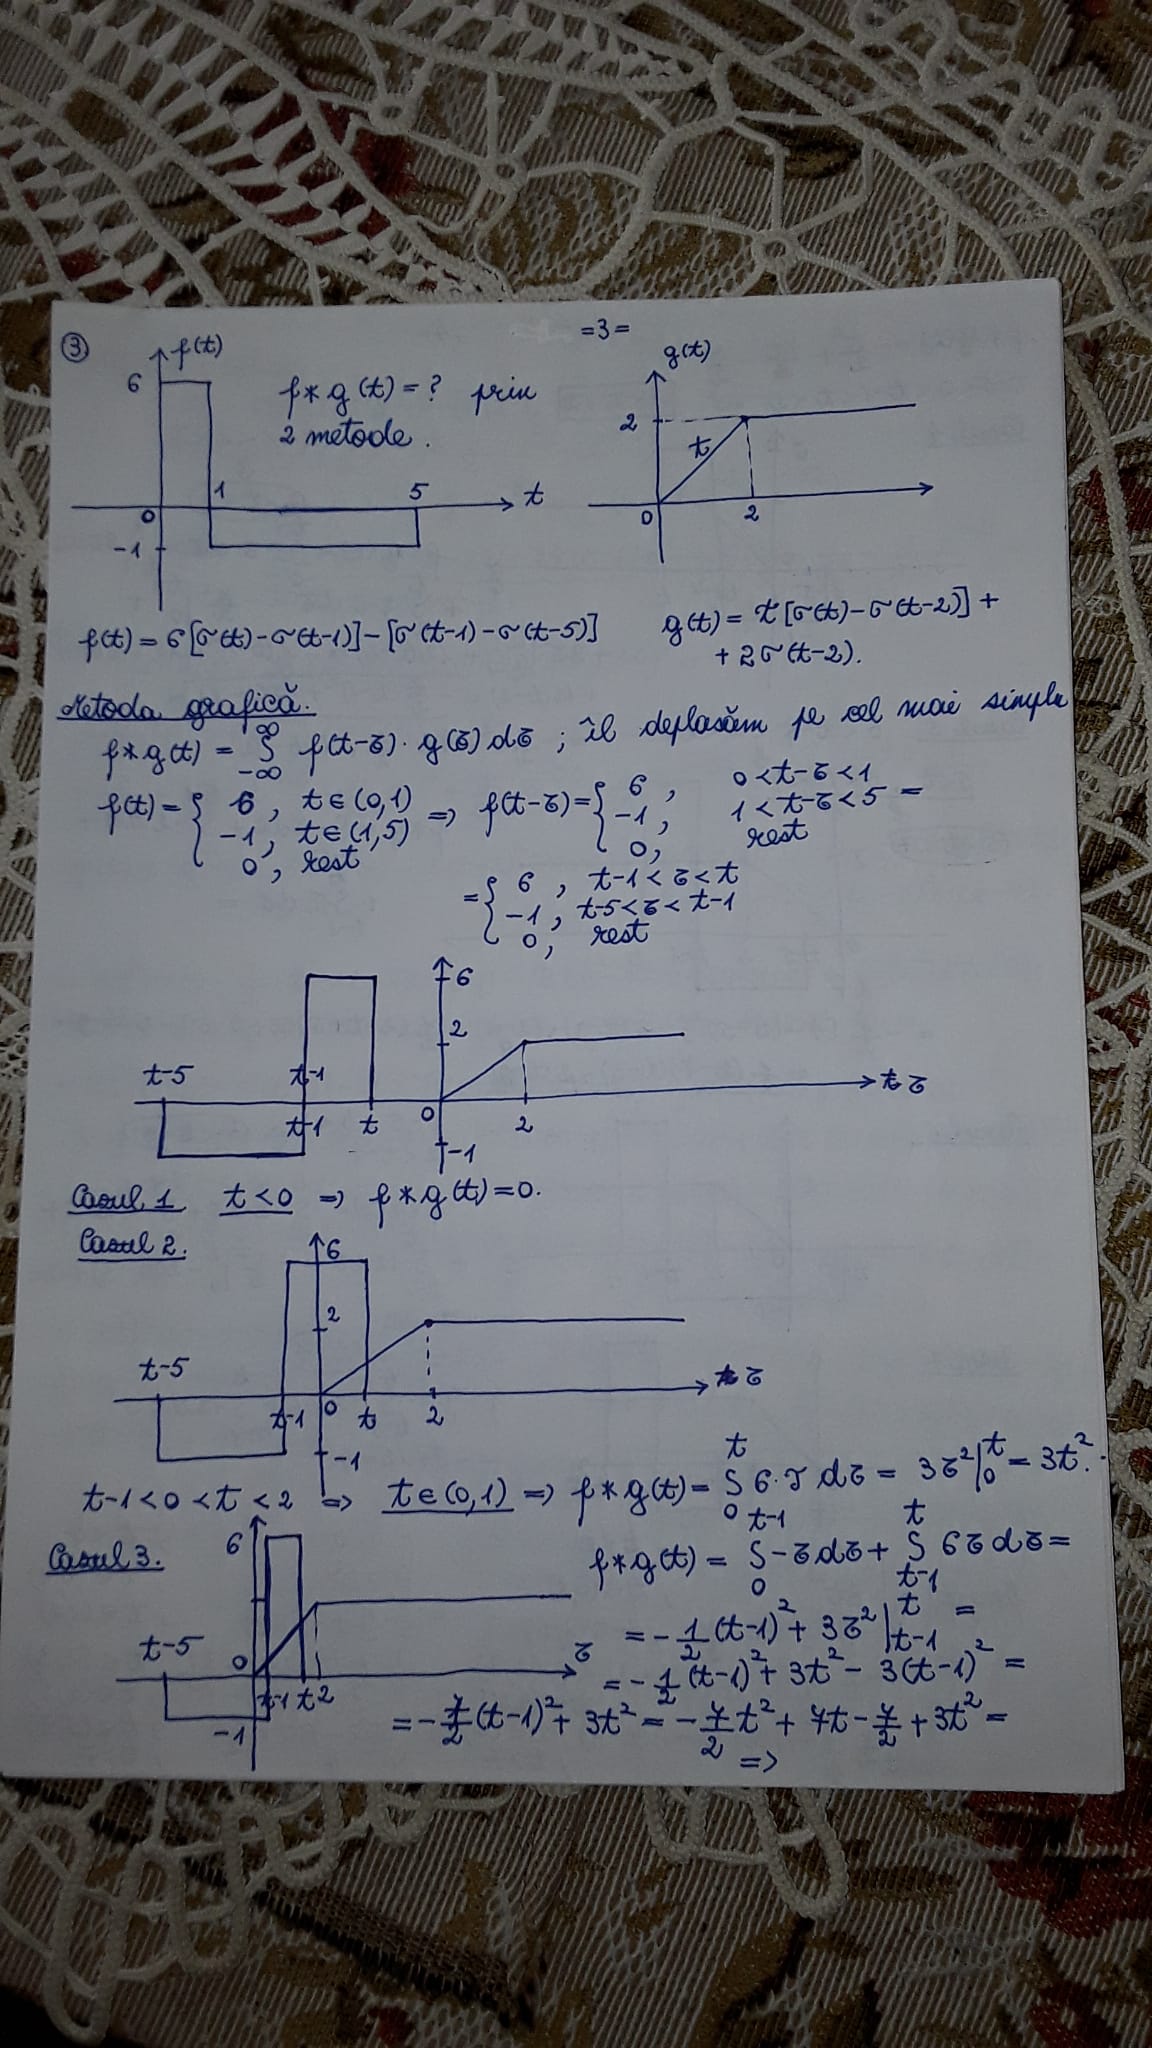 =3=
③ f(t) g(t)
6 f*g(t)=? prin 2
2 metode. t
1 5 t
0 0 2
-1
f(t)=6[σ(t)-σ(t-1)]-[σ(t-1)-σ(t-5)] g(t)=t[σ(t)-σ(t-2)]+
+2σ(t-2).
Metoda grafică.
f*g(t) = ∫_{-∞}^{∞} f(t-τ)·g(τ)dτ ; îl deplasăm pe cel mai simplu
f(t)={ 6, t∈(0,1) ⇒ f(t-τ)={ 6, 0<t-τ<1
-1, t∈(1,5) -1, 1<t-τ<5 =
0, rest 0, rest
={ 6, t-1<τ<t
-1, t-5<τ<t-1
0, rest
6
2
t-5 t-1 τ
t-1 t 0 2
-1
Casul 1 t<0 ⇒ f*g(t)=0.
Casul 2.
6
2
t-5 τ
t-1 0 t 2
-1
t-1<0<t<2 ⇒ t∈(0,1) ⇒ f*g(t)=∫_0^t 6·τ dτ = 3τ²|_0^t = 3t².
Casul 3. 6 f*g(t) = ∫_0^{t-1} -τdτ + ∫_{t-1}^t 6τdτ =
= -1/2 (t-1)² + 3τ²|_{t-1}^t =
t-5 0 τ
= -1/2 (t-1)² + 3t² - 3(t-1)² =
t-1 t 2
-1
= -7/2 (t-1)² + 3t² = -7/2 t² + 7t - 7/2 + 3t² =
⇒